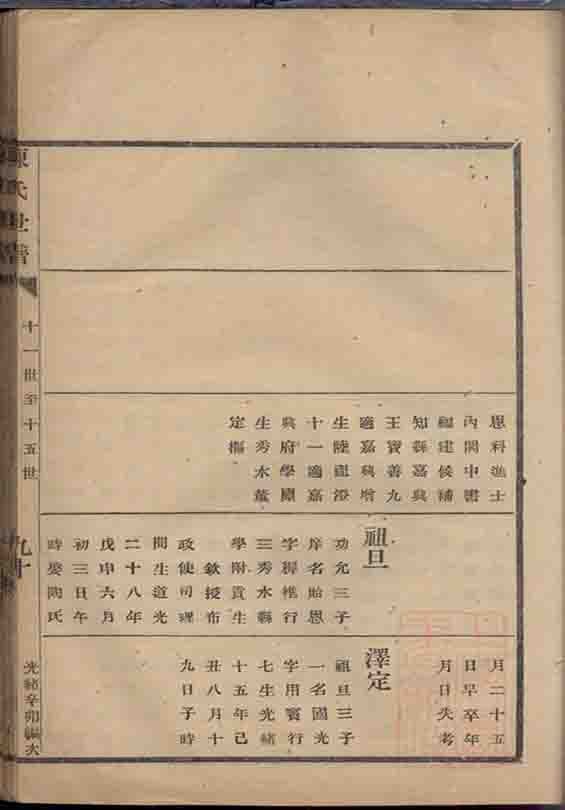 恩科進士
內閣中書
福建候補
知縣嘉興
王寶善九
適嘉興增
生陸澄
十一適嘉
興府學廩
生秀水董
定樞
祖旦
功允三子
庠名貽恩
字穉行
三秀水縣
學附貢生
欽授布
政使司理
問生道光
二十八年
戊申六月
初三日午
時娶陶氏
月二十五
日早卒年
月日失考
澤定
祖旦三子
一名國光
字用賓行
七生光緒
十五年己
丑八月十
九日子時
陳氏世譜
十一世至十五世
九十
光緒辛卯編次